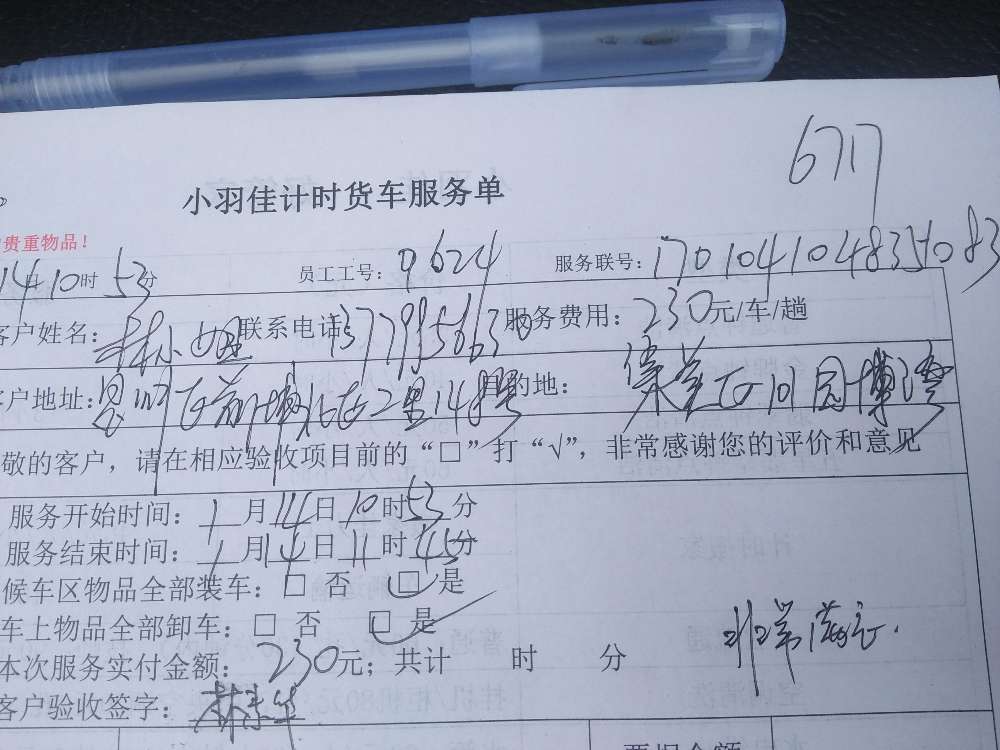 6717
小羽佳计时货车服务单
贵重物品!
14日10时53分 员工工号:09624 服务联号:
客户姓名:林小 联系电话: 服务费用:230元/车/趟
客户地址: 14 目的地: 园博湾
敬的客户，请在相应验收项目前的“□”打“√”，非常感谢您的评价和意见
服务开始时间:1月14日10时53分
服务结束时间:1月14日11时45分
候车区物品全部装车:□ 否 □ 是
车上物品全部卸车:□ 否 □ 是
非常满意.
本次服务实付金额:230元；共计 时 分
客户验收签字:林
票据金额